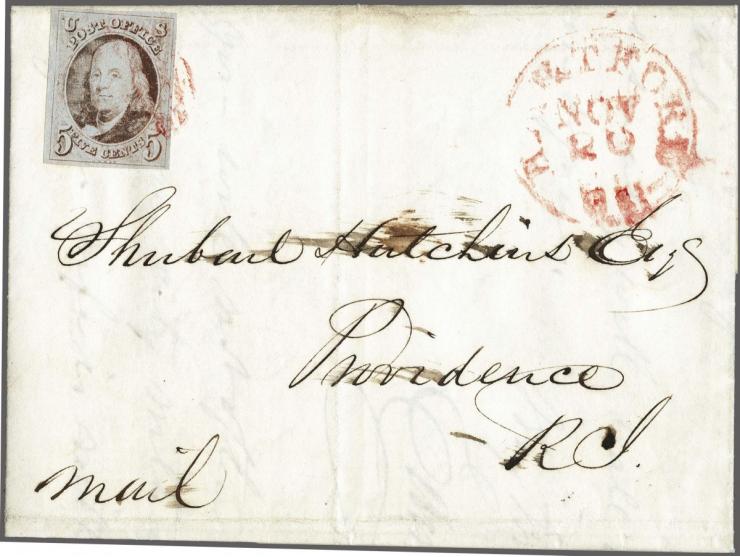 U S
POST OFFICE
FIVE CENTS
5 5
HARTFORD
NOV
20
Shubael Hutchins Esq
Providence
R I.
mail